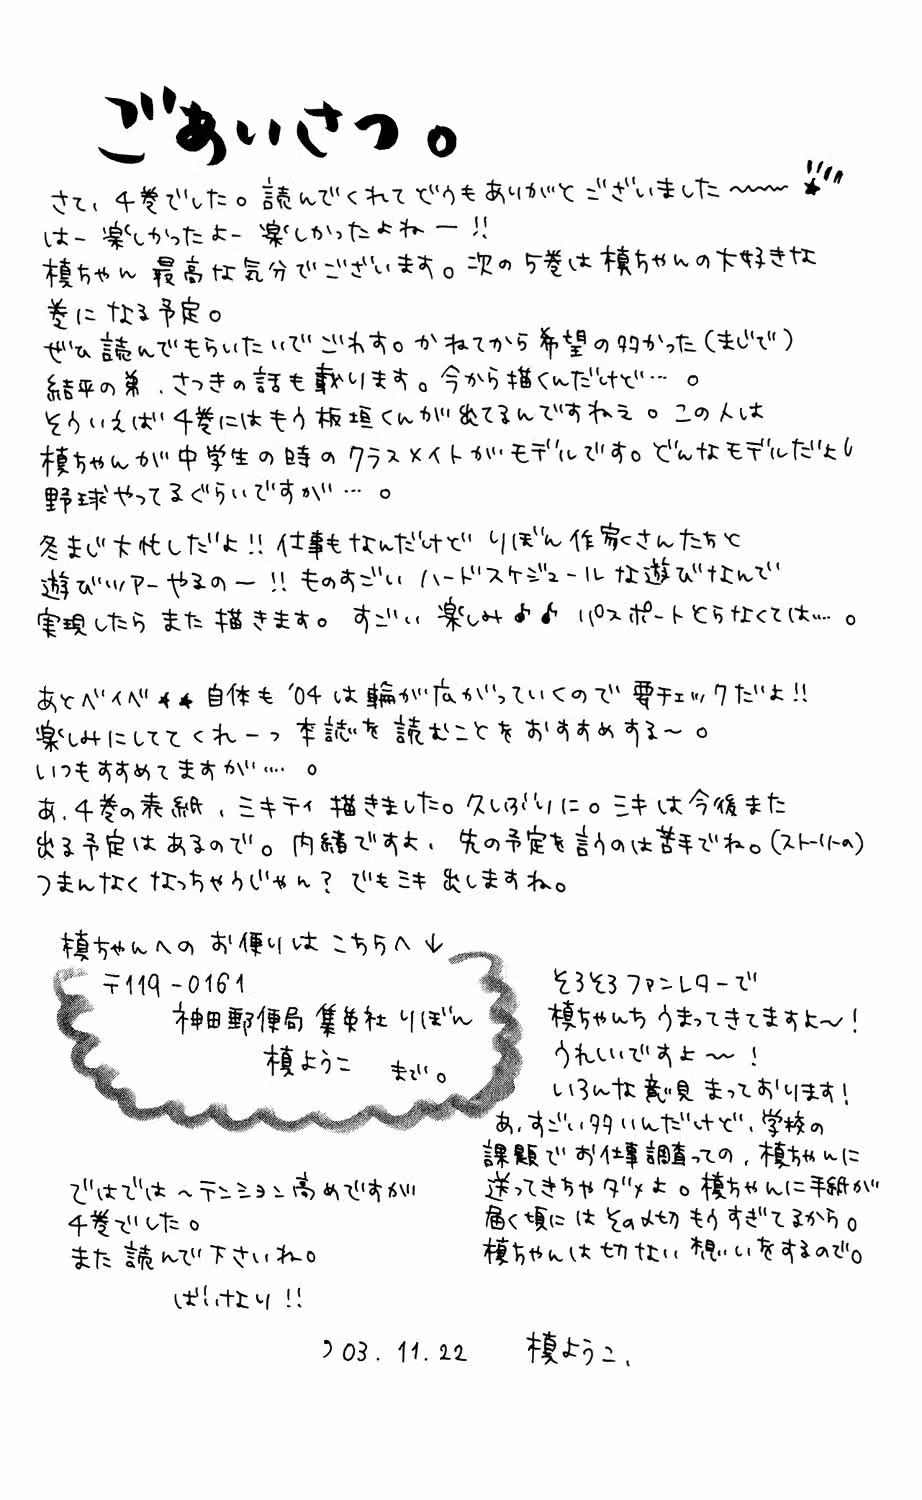 ごあいさつ。
さて、4巻でした。読んでくれてどうもありがとございました〜〜!!!!
はー楽しかったよー楽しかったよねー!!
槙ちゃん最高な気分でございます。次の5巻は槙ちゃんの大好きな
巻になる予定。
ぜひ読んでもらいたいでごわす。かねてから希望の多かった(まじで)
結平の弟、さつきの話も載ります。今から描くんだけど…。
そういえば4巻にはもう板垣くんが出てるんですねえ。この人は
槙ちゃんが中学生の時のクラスメイトがモデルです。どんなモデルだよ
野球やってるぐらいですが…。
冬まじ大忙しだよ!!仕事もなんだけどりぼん作家さんたちと
遊びツアーやるのー!!ものすごいハードスケジュールな遊びなんで
実現したらまた描きます。すごい楽しみ♪♪パスポートとらなくては…。
あとベイベ★★自体も'04は輪が広がっていくので要チェックだよ!!
楽しみにしててくれーっ本誌を読むことをおすすめする〜。
いつもすすめてますが…。
あ、4巻の表紙、ミキティ描きました。久しぶりに。ミキは今後また
出る予定はあるので。内緒ですよ、先の予定を言うのは苦手でね。(ストーリーの)
つまんなくなっちゃうじゃん?でもミキ出しますね。
槙ちゃんへのお便りはこちらへ↓
〒119-0161
神田郵便局集英社りぼん
槙ようこ まで。
そろそろファンレターで
槙ちゃんちうまってきてますよ〜!
うれしいですよ〜!
いろんな意見まっております!
あ、すごい多いんだけど、学校の
課題でお仕事調査っての、槙ちゃんに
送ってきちゃダメよ。槙ちゃんに手紙が
届く頃にはその〆切もうすぎてるから。
槙ちゃんは切ない想いをするので。
ではでは〜テンション高めですが
4巻でした。
また読んで下さいね。
ばいなり!!
'03.11.22 槙ようこ、